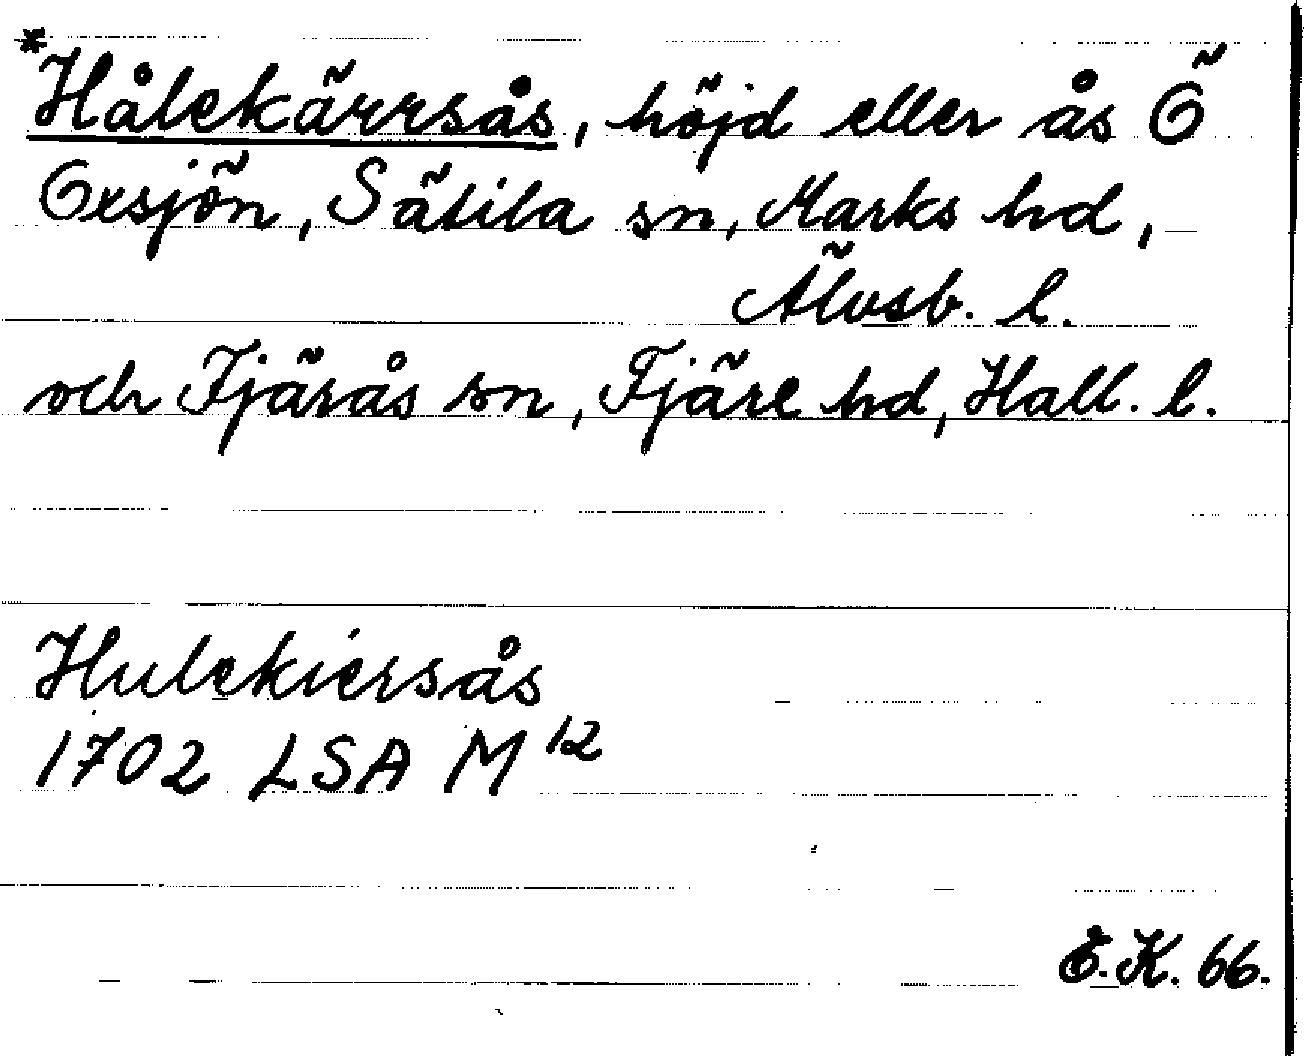 *Hålekärrsås, höjd eller ås Ö
Oxsjön, Sätila sn, Marks hd,
Älvsb. l.
och Fjärås sn, Fjäre hd, Hall. l.
Hulekiersås
1702 LSA M 12
E.K. 66.